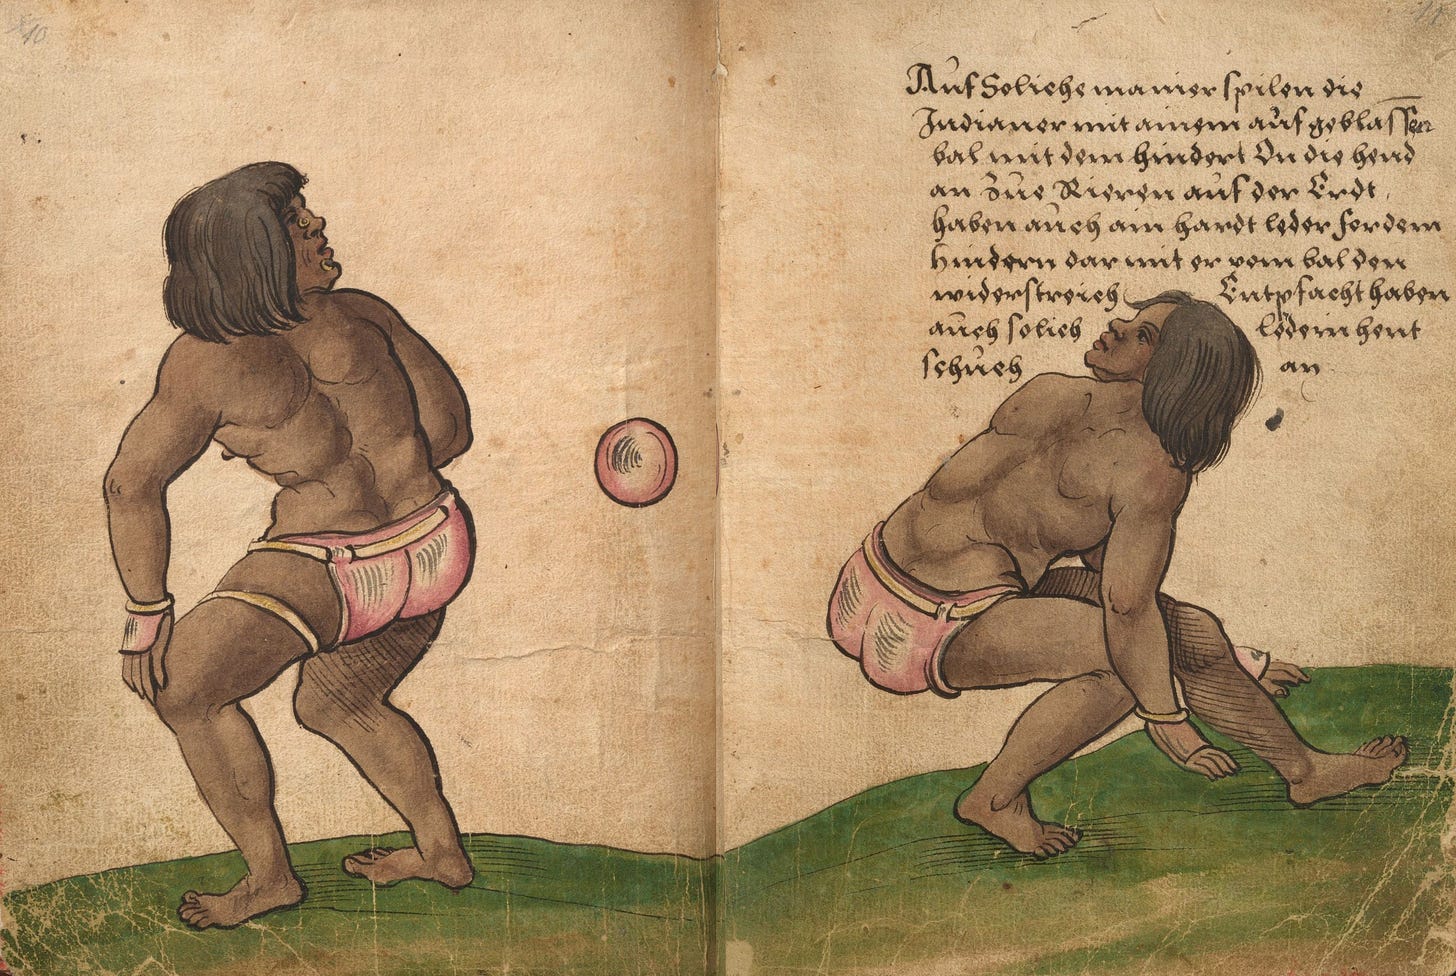 10
11
Auf Soliche manier spilen die
Indianer mit ainem auf geblassen
bal mit dem hindert On die hend
an Zue Rieren auf der Erdt
haben auch ain hardt leder for dem
hindern dar mit er vom bal den
widerstreich Entpfacht haben
auch solich ledern hent
schuch an